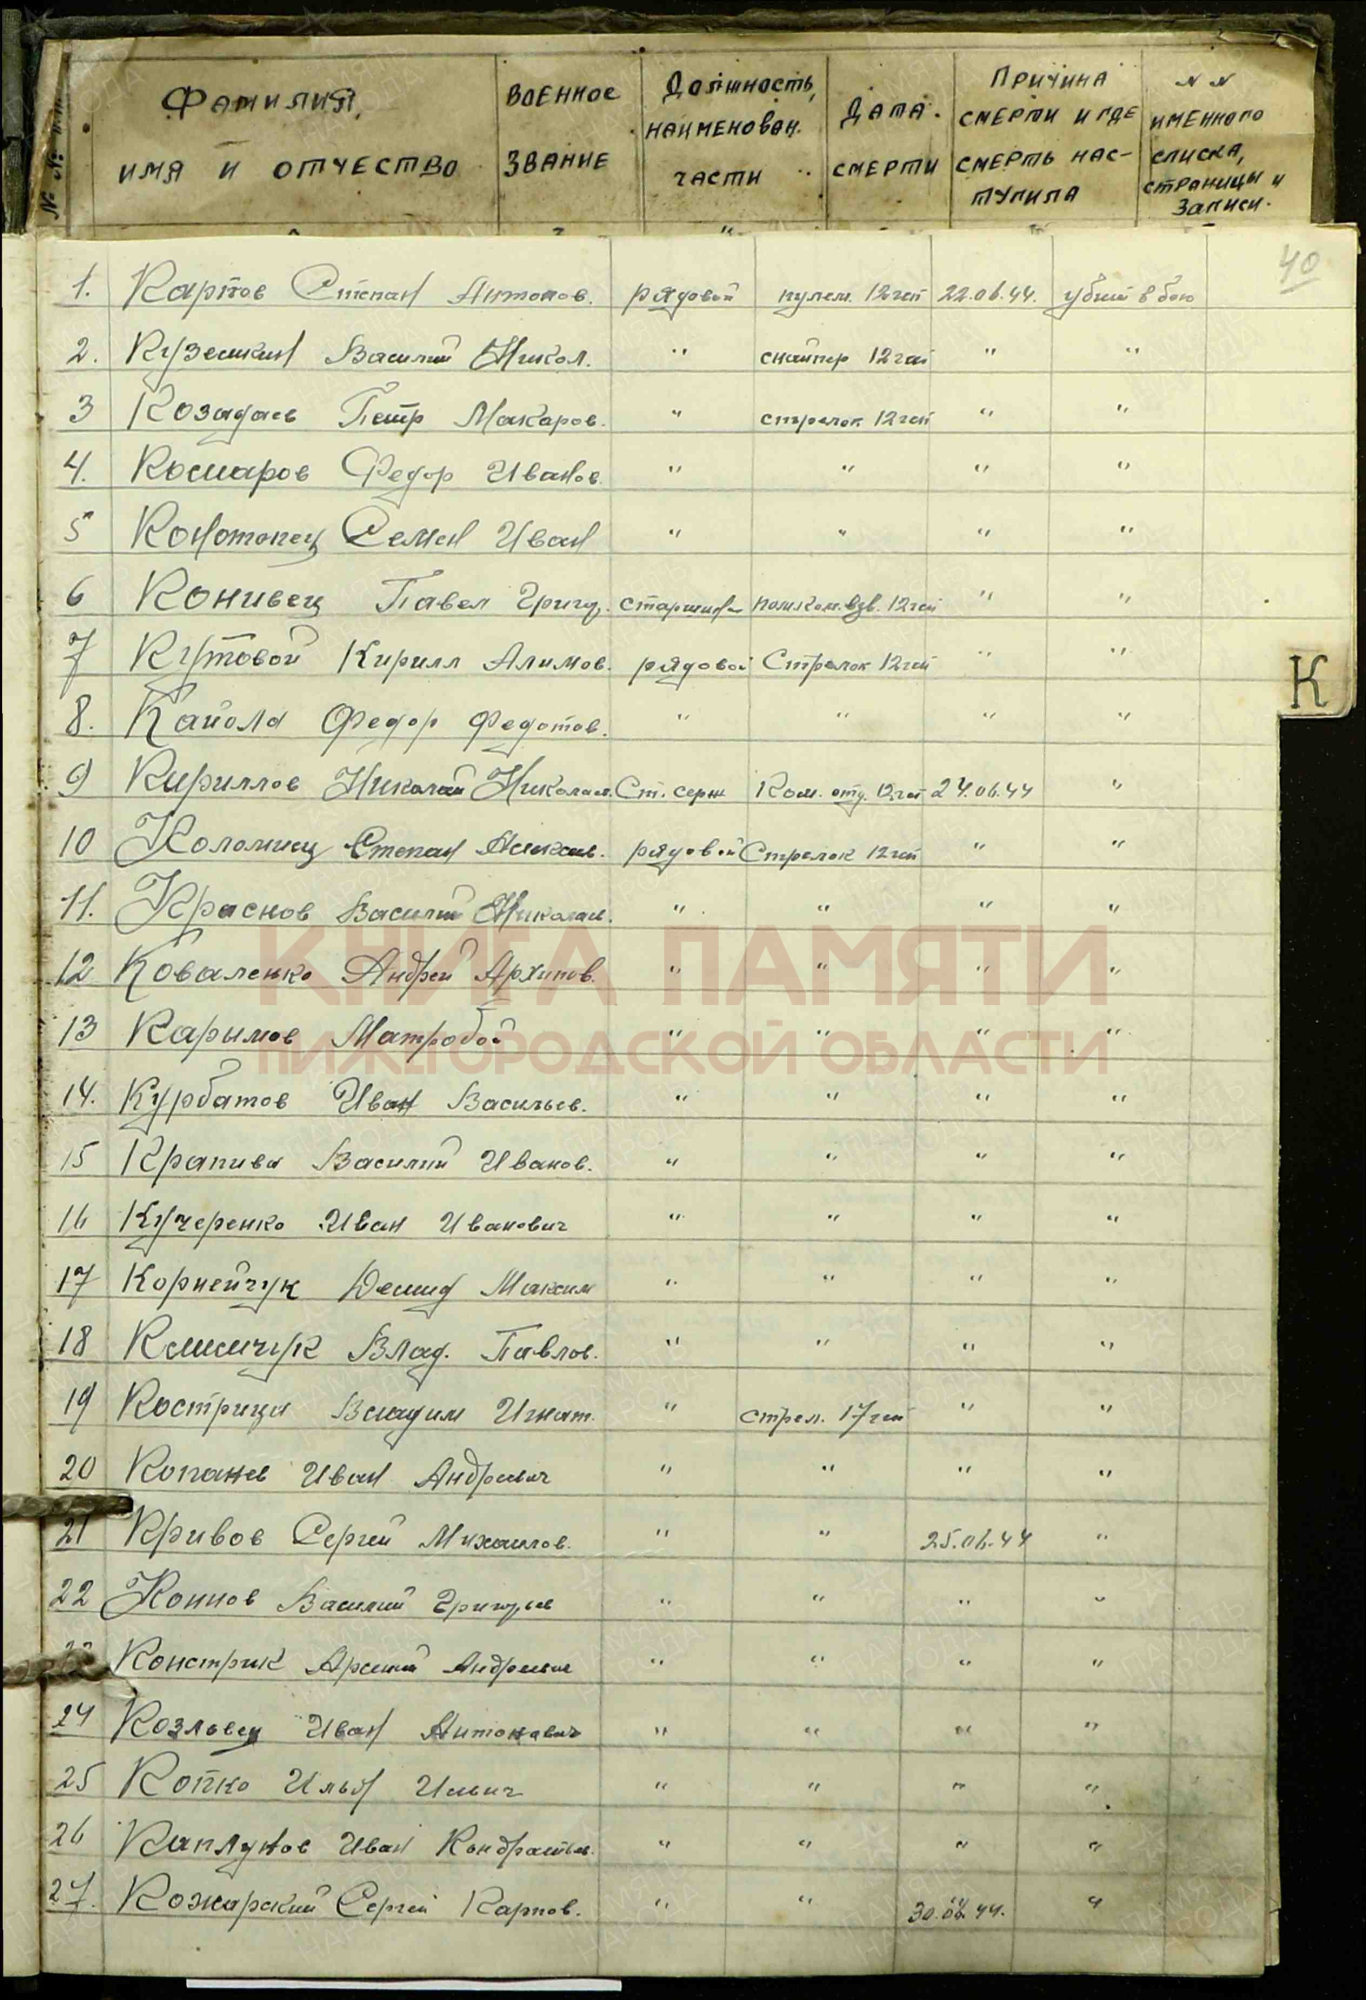 №№ п.п. ФАМИЛИЯ, ИМЯ И ОТЧЕСТВО ВОЕННОЕ ЗВАНИЕ ДОЛЖНОСТЬ, НАИМЕНОВАН. ЧАСТИ ДАТА СМЕРТИ ПРИЧИНА СМЕРТИ И ГДЕ СМЕРТЬ НАСТУПИЛА №№ ИМЕННОГО СПИСКА, СТРАНИЦЫ И ЗАПИСИ.
40
1. Карпов Степан Антонов. рядовой пулем. 12 гсп 22.06.44. убит в бою
2. Василий Никол. " снайпер 12 гсп " "
3 Козадаев Петр Макаров. " стрелок 12 гсп " "
4. Комаров Федор Иванов. " " " "
5 Конотопец Семен Иван " " " "
6 Конивец Павел Григ. старшина помком.взв. 12 гсп " "
7 Кутовой Кирилл Алимов. рядовой Стрелок 12 гсп " "
К
8. Кайола Федор Федотов. " " " "
9 Кириллов Николай Николаев. Ст. серж Ком. отд. 12 гсп 24.06.44 "
10 Коломиец Степан рядовой Стрелок 12 гсп " "
11. Краснов Василий Николаев. " " " "
КНИГА ПАМЯТИ
12 Коваленко Андрей Архипов. " " " "
13 Карымов Матробой " " " "
НИЖГОРОДСКОЙ ОБЛАСТИ
14. Курбатов Иван Васильев. " " " "
15 Крапива Василий Иванов. " " " "
16 Кучеренко Иван Иванович " " " "
17 Корнейчук Демид Максим " " " "
18 Климчук Влад. Павлов. " " " "
19 Кострица Владим Игнат. " стрел. 17 гсп " "
20 Копанев Иван Андреевич " " " "
21 Кривов Сергей Михайлов. " " 25.06.44 "
22 Коннов Василий Григорьев " " " "
23 Констрик Арсений Андреевич " " " "
24 Козловец Иван Антонович " " " "
25 Копко Илья Ильич " " " "
26 Каплунов Иван Кондратьев. " " " "
27. Кожарский Сергей Карпов. " " 30.06.44. "